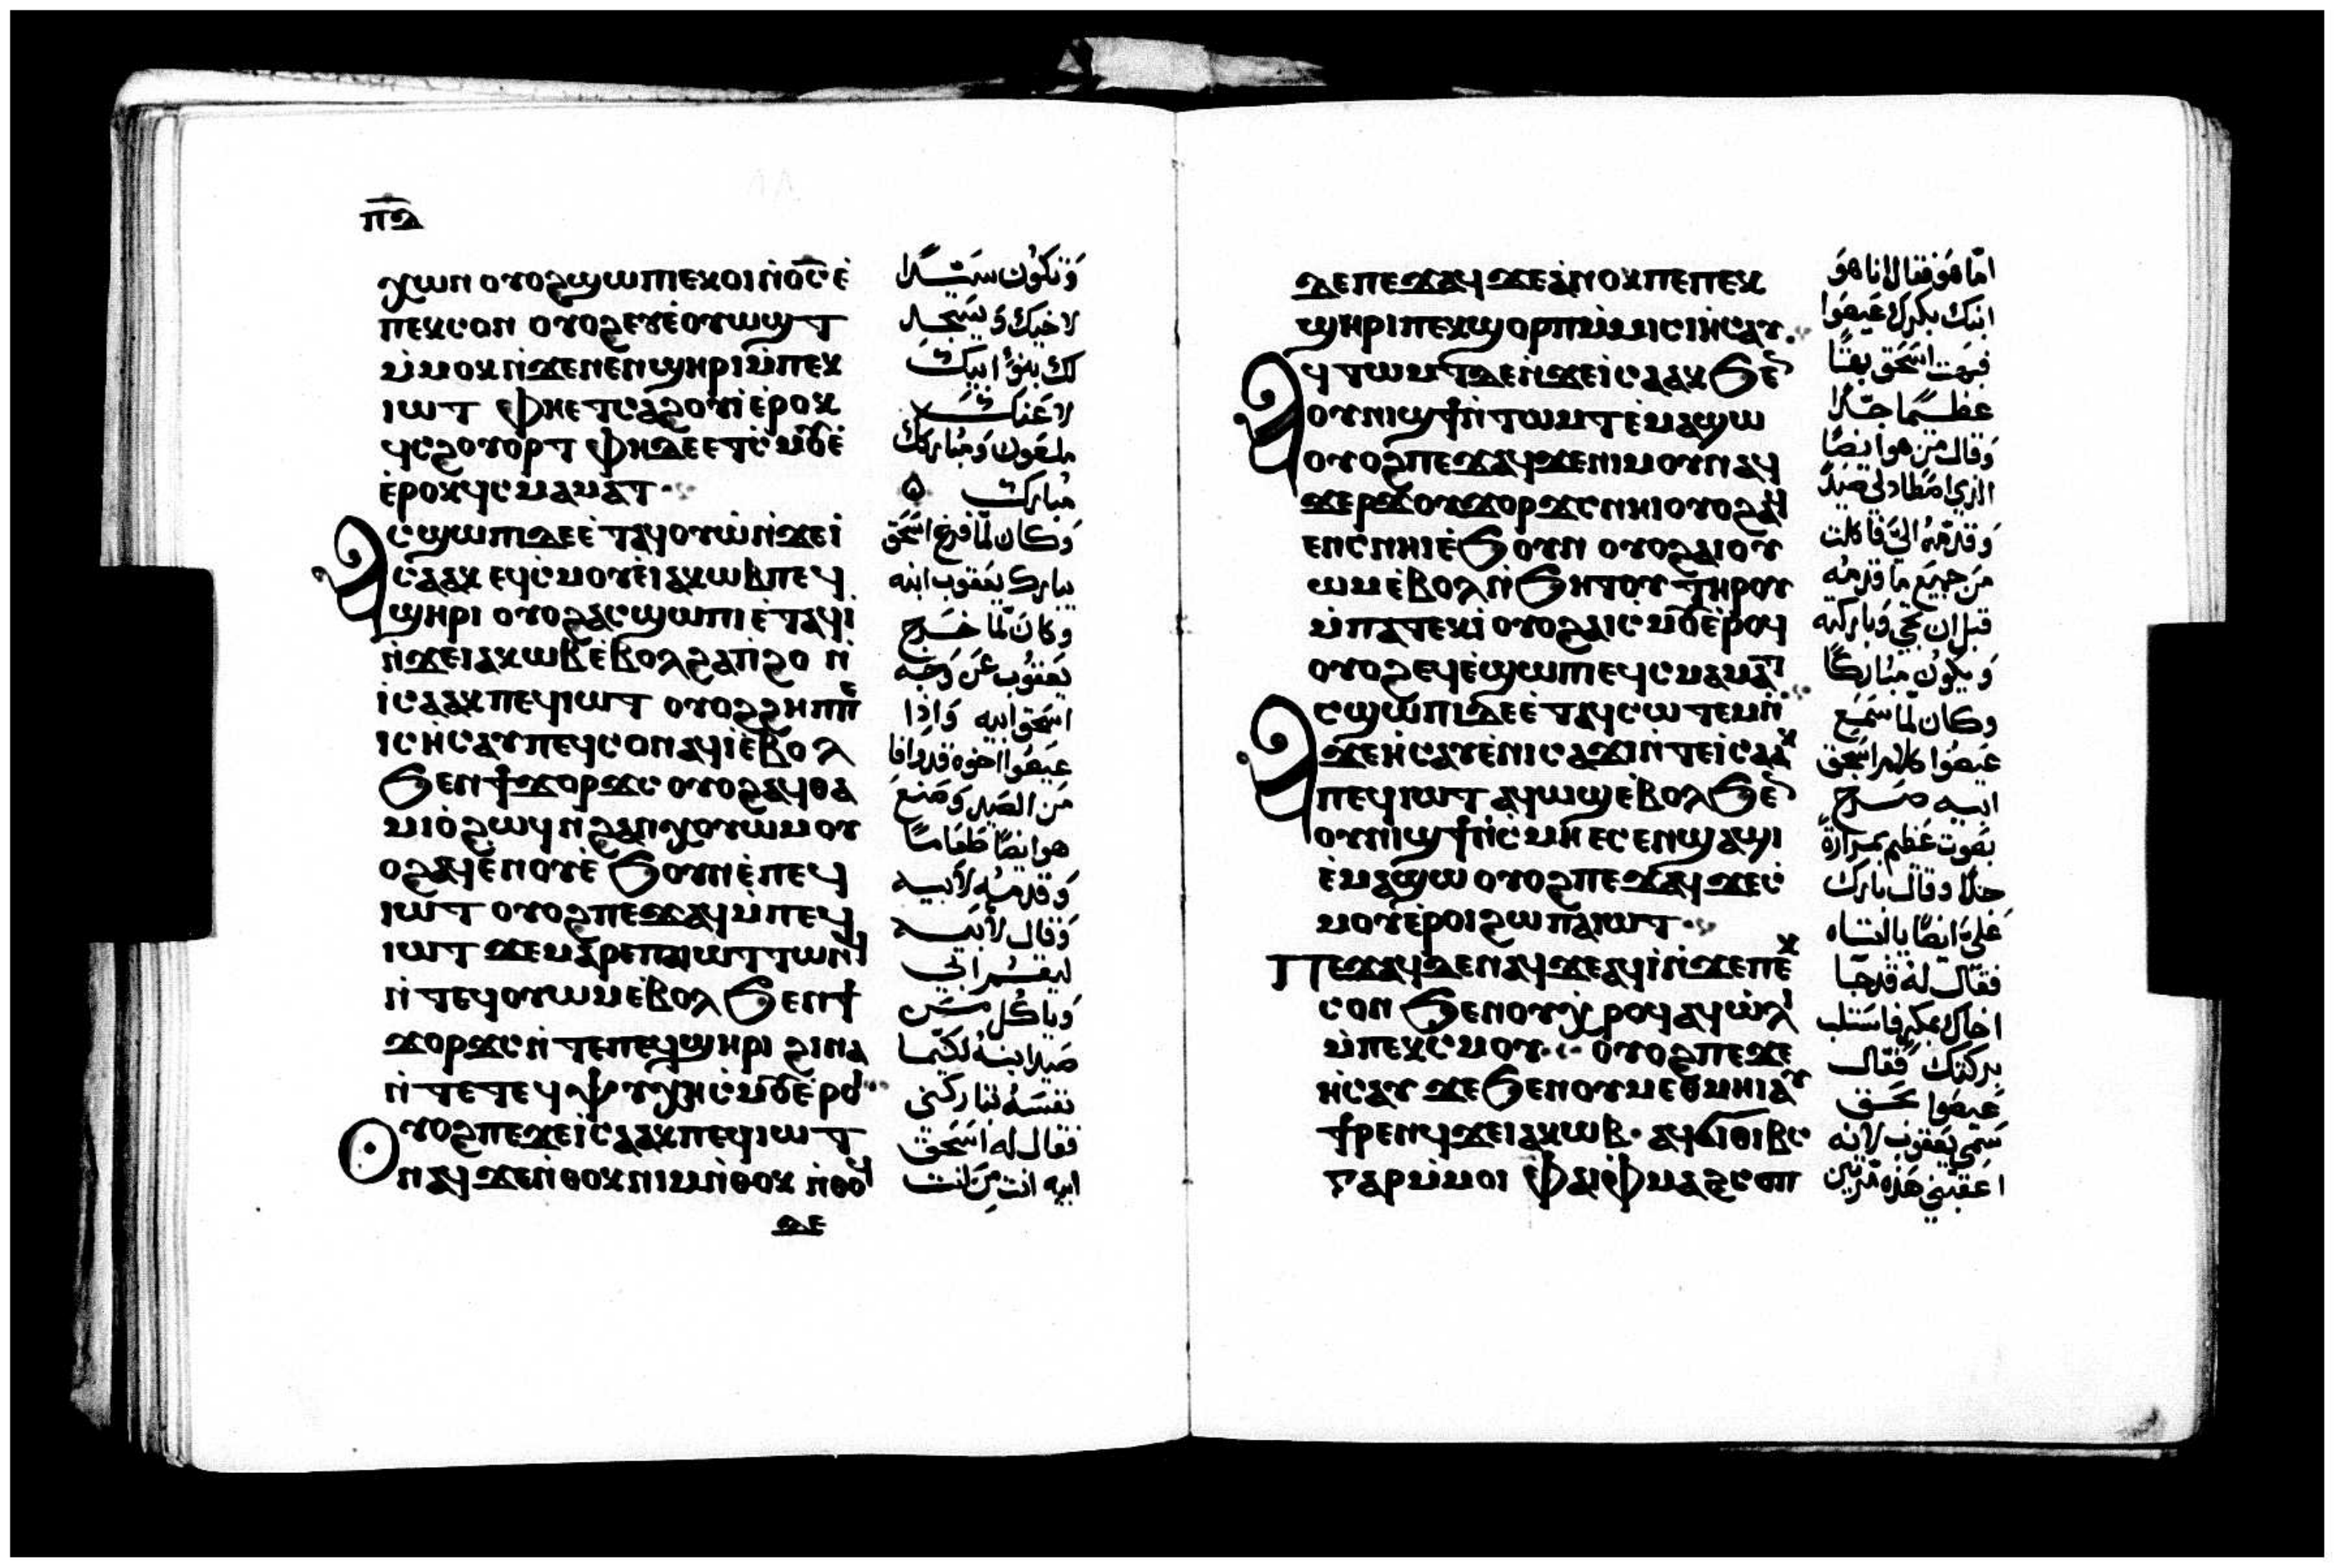 ⲡ̅ⲇ̅
ϫⲱⲛ ⲟⲩⲟϩ ϣⲱⲡⲓ ⲉⲕⲟⲓ ⲛ̀ⲟ̅ⲥ̅ ⲉ̀
ⲡⲉⲕⲥⲟⲛ ⲟⲩⲟϩ ⲉⲩⲉ̀ⲟⲩⲱϣⲧ
ⲙ̀ⲙⲟⲕ ⲛ̀ϫⲉ ⲛⲉⲛϣⲏⲣⲓ ⲙ̀ⲡⲉⲕ
ⲓⲱⲧ ⲫⲏⲉⲧⲥⲁϩⲟⲩⲓ̀ ⲉ̀ⲣⲟⲕ
ϥⲥϩⲟⲩⲟⲣⲧ ⲫⲏⲇⲉ ⲉⲧⲥ̀ⲙⲟⲩ ⲉ̀
ⲉ̀ⲣⲟⲕ ϥⲥⲙⲁⲙⲁⲧ
ⲁⲥϣⲱⲡⲓ ⲇⲉ ⲉ̀ⲧⲁϥⲟⲩⲱ̀ ⲛ̀ϫⲉ ⲓ̀
ⲥⲁⲁⲕ ⲉϥⲥ̀ⲙⲟⲩ ⲉ̀ⲓⲁⲕⲱⲃ ⲡⲉϥ
ϣⲏⲣⲓ ⲟⲩⲟϩ ⲁⲥϣⲱⲡⲓ ⲉ̀ⲧⲁϥⲓ̀
ⲛ̀ϫⲉ ⲓⲁⲕⲱⲃ ⲉ̀ⲃⲟⲗ ϩⲁⲡ̀ϩⲟ ⲛ̀
ⲓ̀ⲥⲁⲁⲕ ⲡⲉϥⲓⲱⲧ ⲟⲩⲟϩ ϩⲏⲡⲡⲉ
ⲓⲥ ⲏ̀ⲥⲁⲩ ⲡⲉϥⲥⲟⲛ ⲁϥⲓ̀ ⲉ̀ⲃⲟⲗ
ϧⲉⲛ ϯϫⲟⲣϫⲥ ⲟⲩⲟϩ ⲁϥⲑⲁ
ⲙⲓⲟ̀ ϩⲱϥ ⲛ̀ϩⲁⲛϭⲟⲩⲱⲙ ⲟⲩ
ⲟϩ ⲁϥⲉⲛⲟⲩ ⲉ̀ϧⲟⲩⲛ ⲉ̀ⲡⲉϥ
ⲓⲱⲧ ⲟⲩⲟϩ ⲡⲉϫⲁϥ ⲙ̀ⲡⲉϥ
ⲓⲱⲧ ϫⲉ ⲙⲁⲣⲉ ⲡⲁⲓⲱⲧ ⲧⲱⲛϥ
ⲛ̀ⲧⲉϥⲟⲩⲱⲙ ⲉ̀ⲃⲟⲗ ϧⲉⲛ ϯ
ϫⲟⲣϫⲥ ⲛ̀ⲧⲉ ⲡⲉϥϣⲏⲣⲓ ϩⲓⲛⲁ
ⲛ̀ⲧⲉ ⲧⲉϥⲯⲩⲭⲏ ⲥ̀ⲙⲟⲩ ⲉ̀ⲣⲟⲓ
ⲟⲩⲟϩ ⲡⲉϫⲉ ⲓ̀ⲥⲁⲁⲕ ⲡⲉϥⲓⲱⲧ
ⲛⲁϥ ϫⲉ ⲛ̀ⲑⲟⲕ ⲛⲓⲙ ⲛ̀ⲑⲟⲕ ⲛ̀ⲑⲟϥ
ⲇⲉ
وَتكون سيّدًا
لاخيك وَ يسَجد
لك بنوُا ابيك
لاعَنك
ملعَون وَمُباركك
مُبارك ۵
وَكان لمّا فرغ اسَحَق
يبارك يعَقوب ابنه
وكانَ لمّا خرج
يعَقوُب عَن وَجه
اسَحَق ابيه وَاِذا
عَيصَوا اخوه قد وَافا
مَن الصَيد وَصَنعَ
هو ايضًا طَعَامًا
وَقدمَه لأبيه
وَقال لأبيه
ليقم ابي
وَياكُل مَن
صَيد ابنهُ لكيما
نفسَهُ تباركني
فقال له اسَحَق
ابيه انت مَن انت
ⲇⲉ ⲡⲉϫⲁϥ ϫⲉ ⲁ̀ⲛⲟⲕ ⲡⲉ ⲡⲉⲕ
ϣⲏⲣⲓ ⲡⲉⲕϣⲟⲣⲡ ⲙ̀ⲙⲓⲥⲓ ⲏ̀ⲥⲁⲩ
ⲁϥⲧⲱⲙⲧ ⲇⲉ ⲛ̀ϫⲉ ⲓ̀ⲥⲁⲁⲕ ϧⲉⲛ
ⲟⲩⲛⲓϣϯ ⲛ̀ⲧⲱⲙⲧ ⲉ̀ⲙⲁϣⲱ
ⲟⲩⲟϩ ⲡⲉϫⲁϥ ϫⲉ ⲛⲓⲙ ⲟⲩⲛ ⲁϥ
ϫⲉⲣϫ ⲟⲩϫⲟⲣϫⲥ ⲛⲏⲓ ⲟⲩⲟϩ ⲁϥ
ⲉⲛⲥ ⲛⲏⲓ ⲉ̀ϧⲟⲩⲛ ⲟⲩⲟϩ ⲁⲓⲟⲩ
ⲱⲙ ⲉ̀ⲃⲟⲗ ⲛ̀ϧⲏⲧⲟⲩ ⲧⲏⲣⲟⲩ
ⲙ̀ⲡⲁⲧⲉⲕⲓ̀ ⲟⲩⲟϩ ⲁⲓⲥ̀ⲙⲟⲩ ⲉ̀ⲣⲟϥ
ⲟⲩⲟϩ ⲉϥⲉ̀ϣⲱⲡⲓ ⲉϥⲥⲙⲁⲙⲁⲧ
ⲁⲥϣⲱⲡⲓ ⲇⲉ ⲉ̀ⲧⲁϥⲥⲱⲧⲉⲙ ⲛ̀
ϫⲉ ⲏ̀ⲥⲁⲩ ⲉ̀ⲛⲓⲥⲁϫⲓ ⲛ̀ⲧⲉ ⲓ̀ⲥⲁⲁⲕ
ⲡⲉϥⲓⲱⲧ ⲁϥⲱϣ ⲉ̀ⲃⲟⲗ ϧⲉⲛ
ⲟⲩⲛⲓϣϯ ⲛ̀ⲥ̀ⲙⲏ ⲉⲥⲉⲛϣⲁϣⲓ
ⲉ̀ⲙⲁϣⲱ ⲟⲩⲟϩ ⲡⲉϫⲁϥ ϫⲉ ⲥ̀
ⲙⲟⲩ ⲉ̀ⲣⲟⲓ ϩⲱ ⲡⲁⲓⲱⲧ
ⲡⲉϫⲁϥ ⲇⲉ ⲛⲁϥ ϫⲉ ⲁϥⲓ̀ ⲛ̀ϫⲉ ⲡⲉⲕ
ⲥⲟⲛ ϧⲉⲛ ⲟⲩⲭ̀ⲣⲟϥ ⲁϥⲱ̀ⲗⲓ
ⲙ̀ⲡⲉⲕⲥⲙⲟⲩ ⲟⲩⲟϩ ⲡⲉϫⲉ
ⲏ̀ⲥⲁⲩ ϫⲉ ϧⲉⲛ ⲟⲩⲙⲉⲑⲙⲏⲓ ⲁⲩ
ϯⲣⲉⲛϥ ϫⲉ ⲓⲁⲕⲱⲃ ⲁϥϭⲓⲑⲓⲃⲥ
ⲅⲁⲣ ⲙ̀ⲙⲟⲓ ⲫⲁⲓ ⲫⲙⲁϩ ⲥⲟⲡ
امّا هَوَ فقال انا هوَ
ابنك بكرك عَيصَوا
فبهَت اسَحَق بهتًا
عَظيمًا جدًا
وَقال مَن هوا ايضًا
الذي اصَطاد لي صَيدًا
وَقدمَهُ اليَّ فاكلت
مَن جميع مَا قدمه
قبل ان تجي وَباركته
وَ يكون مُباركًا
وكان لمّا سَمَعَ
عَيصَوا كلام اسَحَق
ابيه صَرخ
بصَوت عَظيم بمَرارة
جدًا وقال بارك
عَليَّ ايضًا يا ابتاه
فقال لهُ قد جَا
اخاك بمكر فاستلب
بركتك فقال
عَيصَوا بحَق
سَمى يعَقوب لانه
اعَقبني هَذه مَرتين